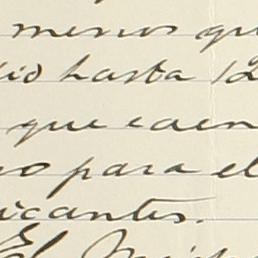 menos qu
io hasta 12
que caen
o para el
icantes.
El Minis